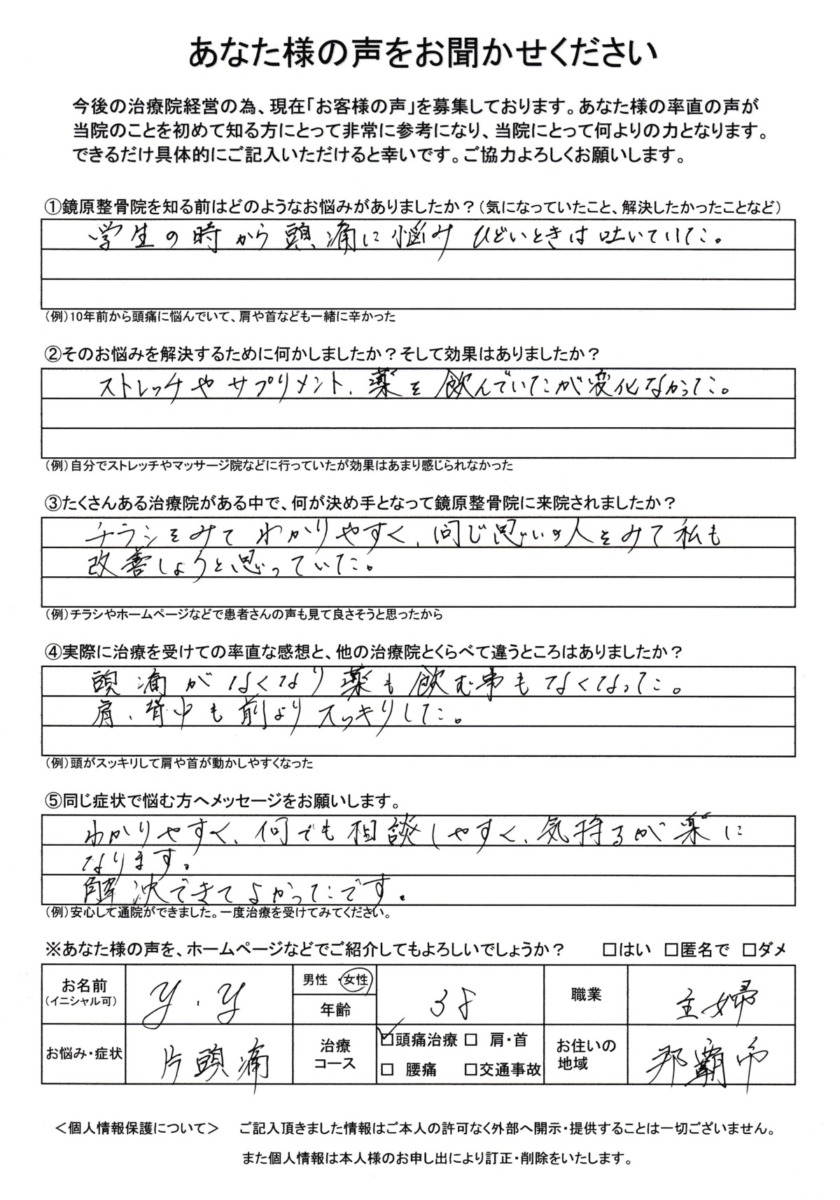 あなた様の声をお聞かせください
今後の治療院経営の為、現在「お客様の声」を募集しております。あなた様の率直の声が
当院のことを初めて知る方にとって非常に参考になり、当院にとって何よりの力となります。
できるだけ具体的にご記入いただけると幸いです。ご協力よろしくお願いします。
①鏡原整骨院を知る前はどのようなお悩みがありましたか？(気になっていたこと、解決したかったことなど)
学生の時から頭痛に悩み ひどいときは吐いていた。
(例)10年前から頭痛に悩んでいて、肩や首なども一緒に辛かった
②そのお悩みを解決するために何かしましたか？そして効果はありましたか？
ストレッチやサプリメント、薬を飲んでいたが変化なかった。
(例)自分でストレッチやマッサージ院などに行っていたが効果はあまり感じられなかった
③たくさんある治療院がある中で、何が決め手となって鏡原整骨院に来院されましたか？
チラシをみてわかりやすく、同じ思いの人をみて私も
改善しようと思っていた。
(例)チラシやホームページなどで患者さんの声も見て良さそうと思ったから
④実際に治療を受けての率直な感想と、他の治療院とくらべて違うところはありましたか？
頭痛がなくなり薬も飲む事もなくなった。
肩、背中も前よりスッキリした。
(例)頭がスッキリして肩や首が動かしやすくなった
⑤同じ症状で悩む方へメッセージをお願いします。
わかりやすく、何でも相談しやすく、気持ちが楽に
なります。
解決できてよかったです。
(例)安心して通院ができました。一度治療を受けてみてください。
※あなた様の声を、ホームページなどでご紹介してもよろしいでしょうか？ □はい □匿名で □ダメ
お名前 (イニシャル可) Y.Y 男性・女性 年齢 38 職業 主婦
お悩み・症状 片頭痛 治療コース ☑頭痛治療 □ 肩・首 □ 腰痛 □交通事故 お住いの地域 那覇市
＜個人情報保護について＞ ご記入頂きました情報はご本人の許可なく外部へ開示・提供することは一切ございません。
また個人情報は本人様のお申し出により訂正・削除をいたします。